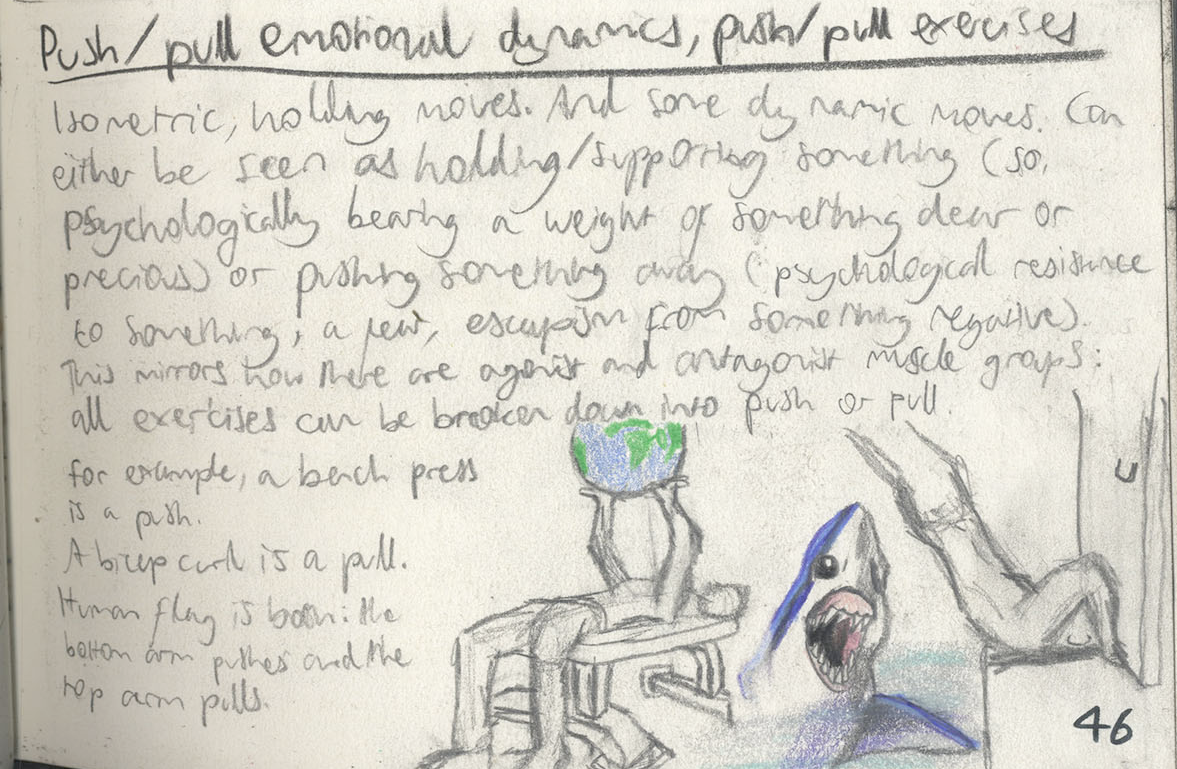 Push/pull emotional dynamics, push/pull exercises
Isometric, holding moves. And some dynamic moves. Can
either be seen as holding/supporting something (so,
psychologically bearing a weight of something dear or
precious) or pushing something away (psychological resistance
to something, a fear, escapism from something negative).
This mirrors how there are agonist and antagonist muscle groups:
all exercises can be broken down into push or pull.
for example, a bench press
is a push.
A bicep curl is a pull.
Human flag is both: the
bottom arm pushes and the
top arm pulls.
46